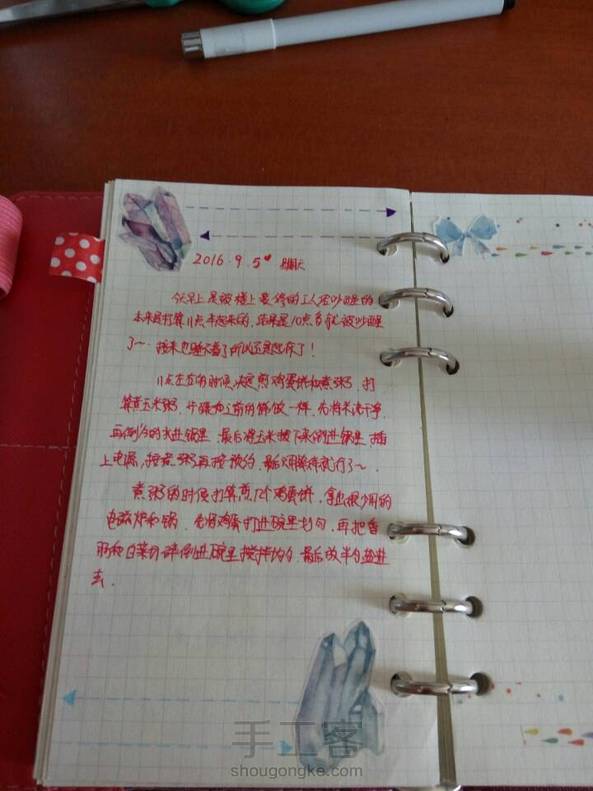 2016.9.5 星期天
今天早上是被楼上装修的工人给吵醒的
本来打算11点半起来的,结果是10点多就被吵醒
了~ 接来也睡不着了所以还是起床了!
11点左右的时候决定煎鸡蛋饼和煮粥,打
算煮玉米粥,步骤和之前的稀饭一样,先将米洗干净,
再倒入水进锅里,最后将玉米掰下来倒进锅里,插
上电源,按煮粥再按预约,最后焖等待就行了~.
煮粥的时候打算煎几个鸡蛋饼,拿出很少用的
电磁炉和锅,先将鸡蛋打进碗里打匀,再把香
肠和白菜切碎倒进碗里搅拌均匀,最后放半勺盐进
去.
手工客
shougongke.com